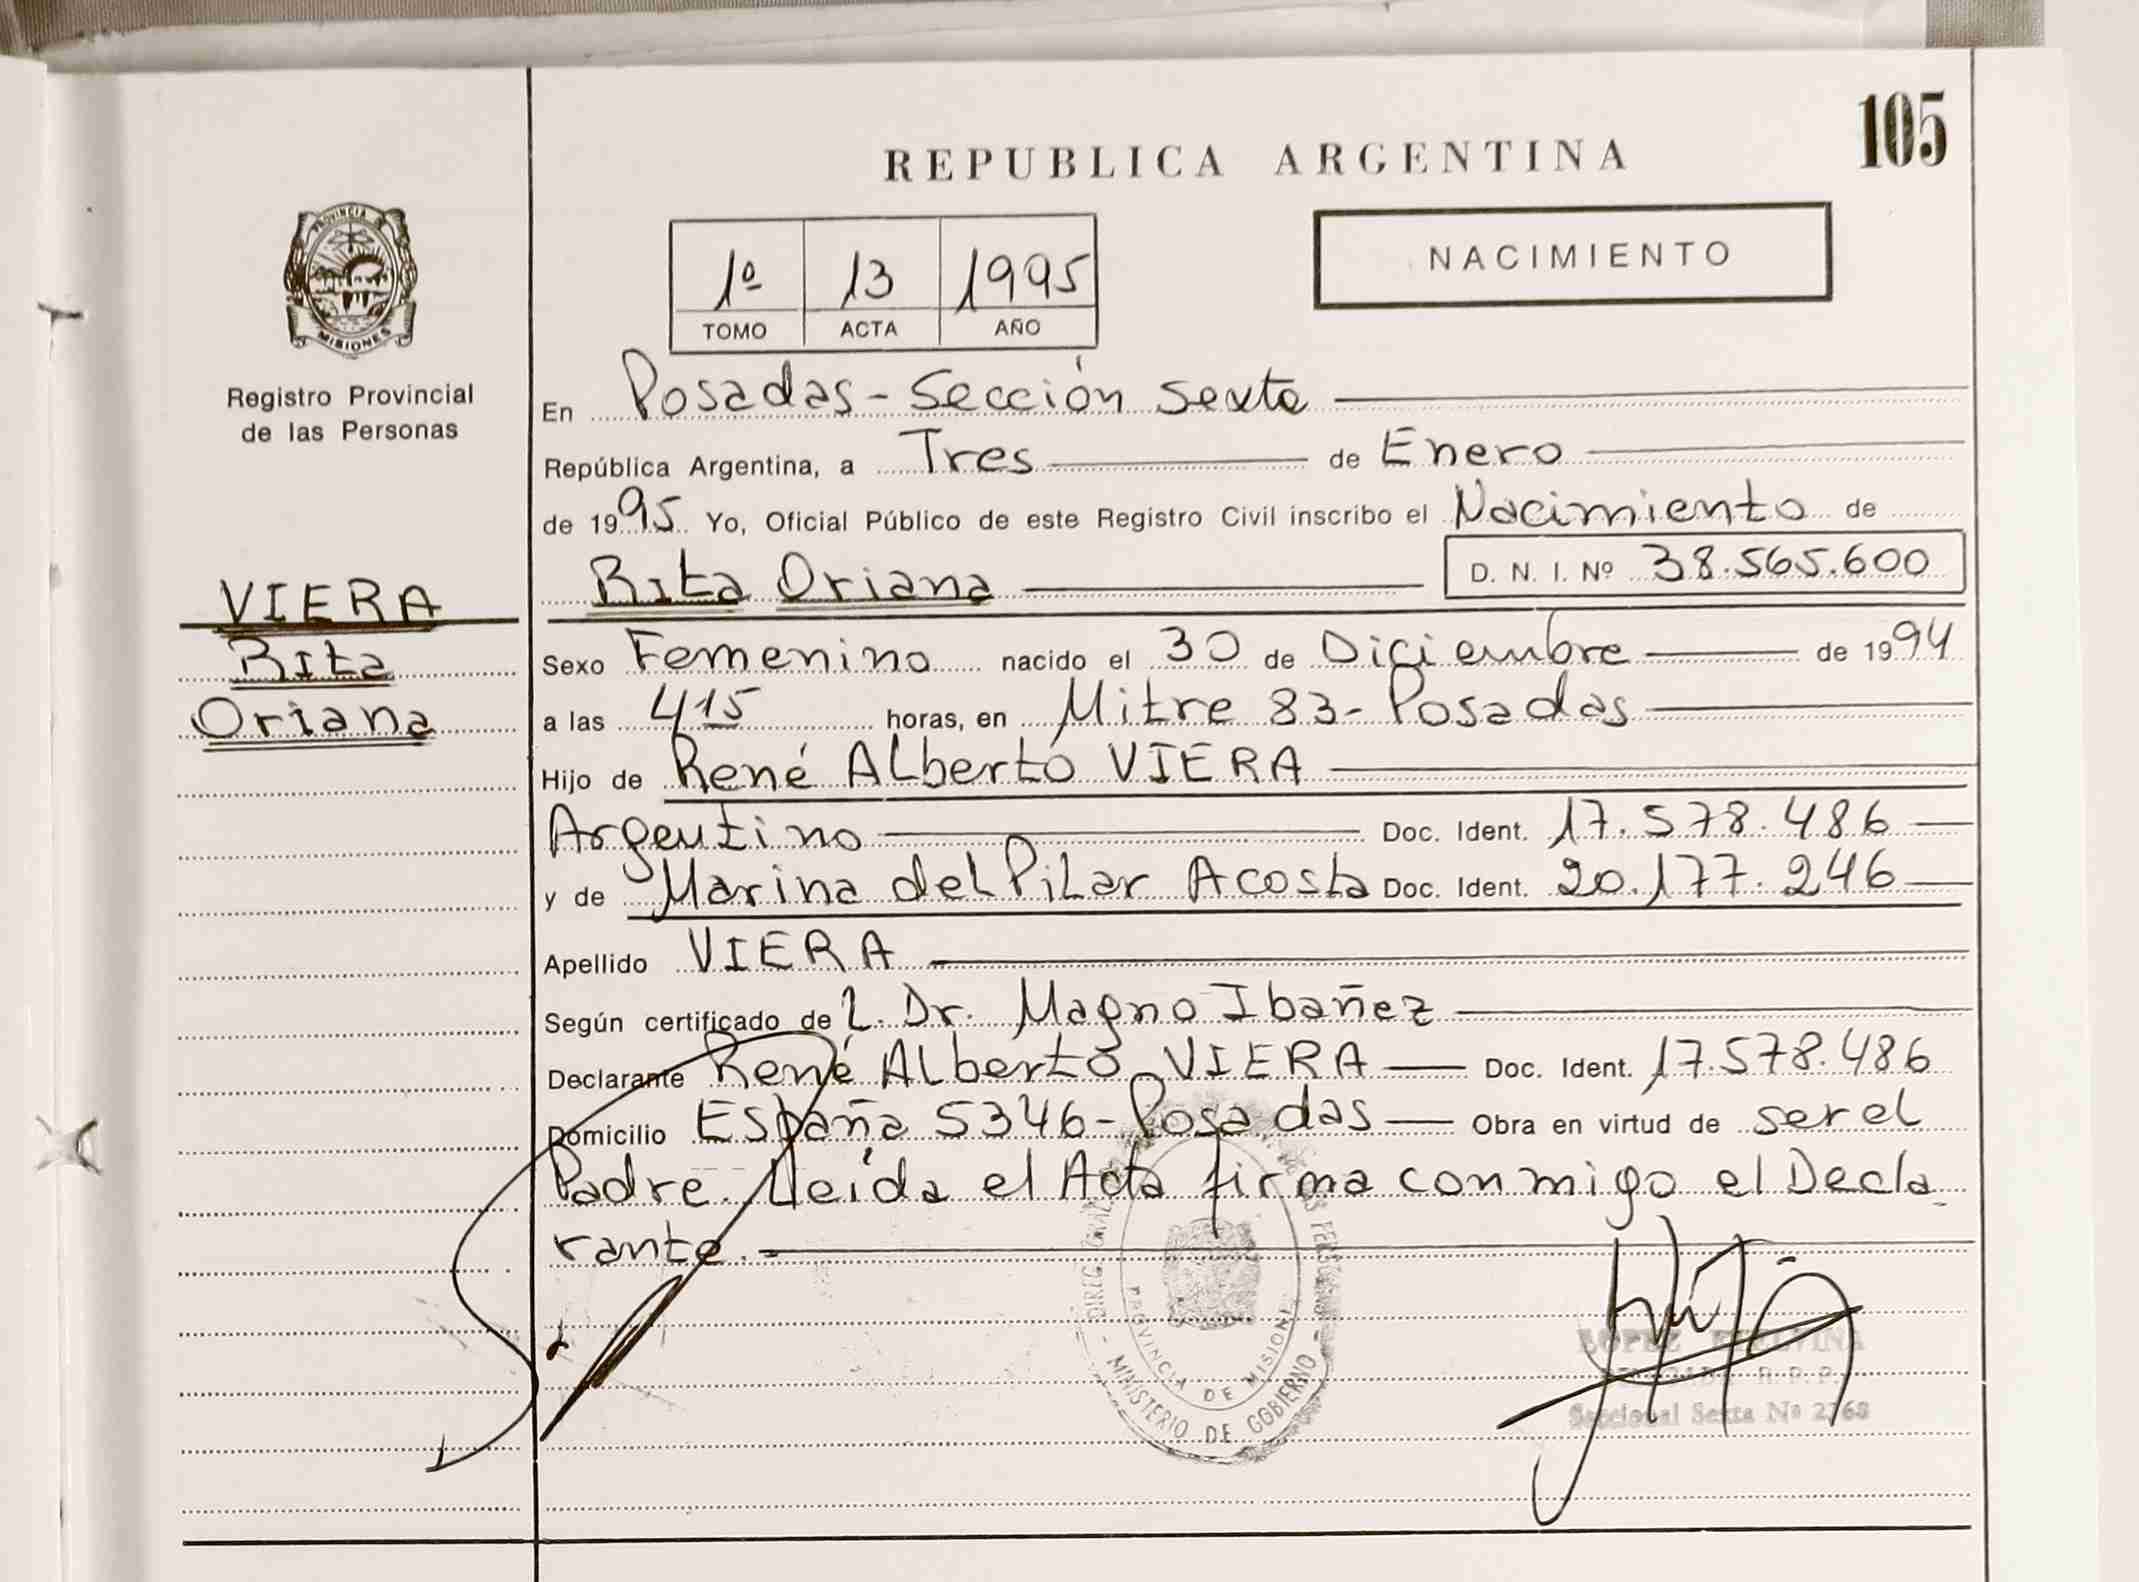 105
REPUBLICA ARGENTINA
NACIMIENTO
1º 13 1995
TOMO ACTA AÑO
PROVINCIA DE
MISIONES
Registro Provincial
de las Personas
VIERA
Rita
Oriana
En Posadas - Sección Sexta
República Argentina, a Tres de Enero
de 1995 Yo, Oficial Público de este Registro Civil inscribo el Nacimiento de
Rita Oriana D. N. I. Nº 38.565.600
Sexo Femenino nacido el 30 de Diciembre de 1994
a las 4 15 horas, en Mitre 83 - Posadas
Hijo de René Alberto VIERA
Argentino Doc. Ident. 17.578.486
y de Marina del Pilar Acosta Doc. Ident. 20.177.246
Apellido VIERA
Según certificado de l. Dr. Magno Ibañez
Declarante René Alberto VIERA Doc. Ident. 17.578.486
Domicilio España 5346 - Posadas Obra en virtud de ser el
Padre. Leída el Acta firma conmigo el Decla
rante.
PROVINCIA DE MISIONES
MINISTERIO DE GOBIERNO
LOPEZ
Seccional Sexta Nº 2768